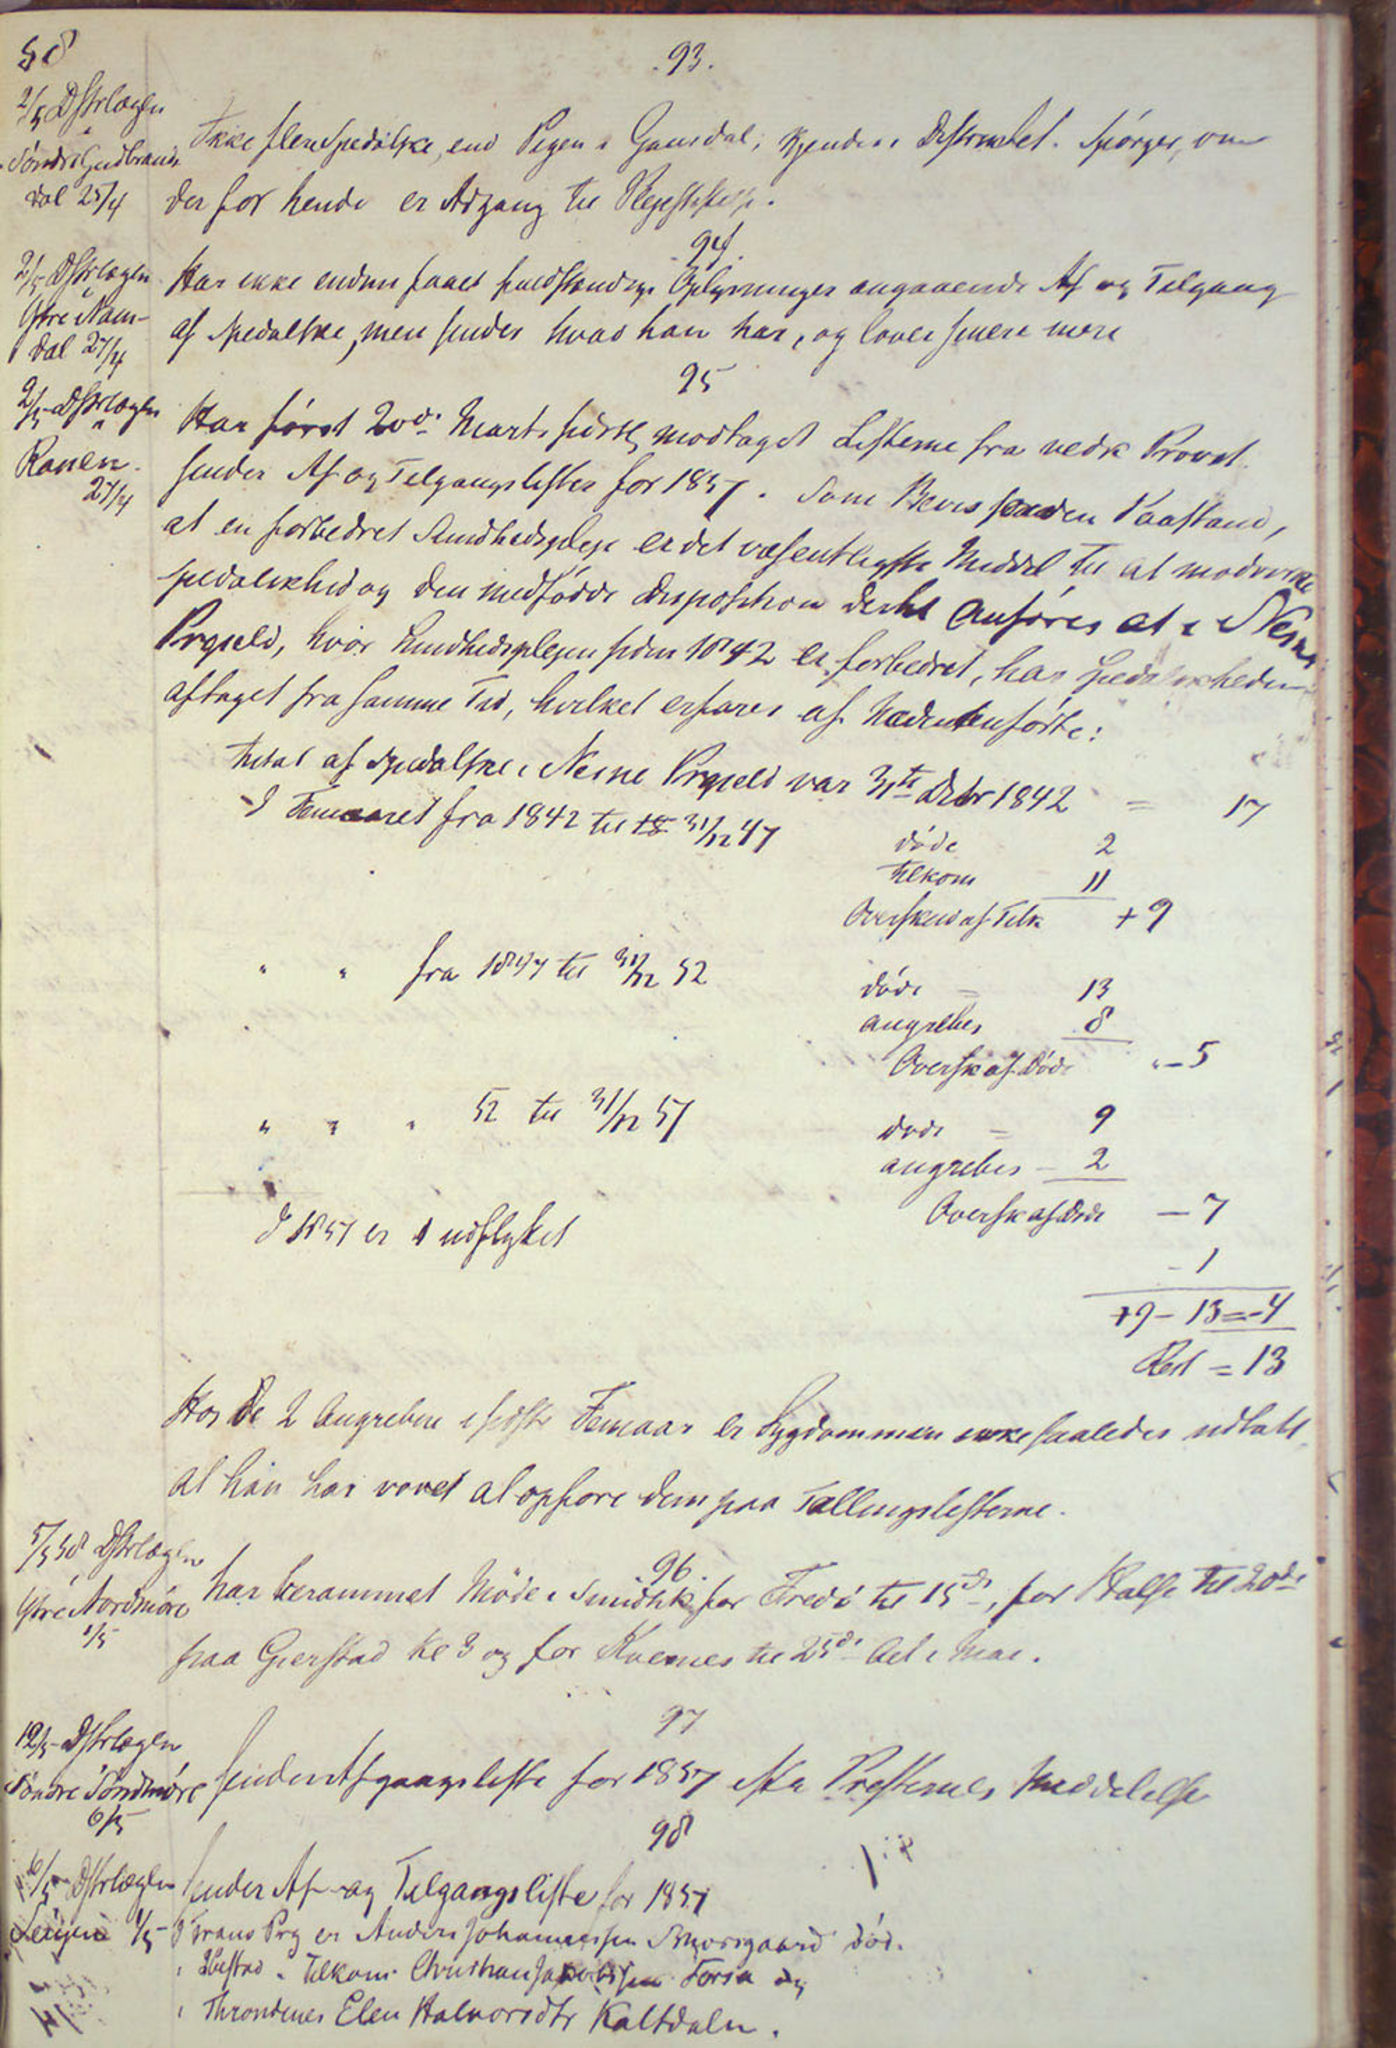 58
.93.
2/5 Dstrlægen
i
Søndre Gudbrands
dal 25/4
Ikke flere Spedalske, end Pigen i Gausdal, kjendes i Distriktet. Spørger, om
der for hende er Adgang til Plejestiftelse.
94.
2/5 Dstrlægen
i
Ytre Nam-
dal 27/4
Har ikke endnu faaet fuldstændige Oplysninger angaaende Af og Tilgang
af Spedalske, men sender hvad han har, og lover senere mere
95
2/5 Dstrlægen
i
Ranen.
27/4
Har først 20de Marts modtaget Listerne fra vedk Provst.
sender Af og Tilgangslister for 1857. Som Bevis for den Paastand,
at en forbedret Sundhedspleje er det væsentligste Middel til at modvirke
spedalskhed og den medfødte Disposition dertil anføres at i Nesne
Prgjeld, hvor Sundhedsplejen siden 1842 er forbedret, har Spedalskheden
aftaget fra samme Tid, hvilket erfares af Nedenanførte:
Antal af Spedalske i Nesne Prgjeld var 31te Debr 1842 = 17
I Femaaret fra 1842 til 18 31/12 47 døde 2
tilkom 11
Overskud af Tilk + 9
" " fra 1847 til 31/12 52 døde = 13
angrebes 8
Oversk af Døde - 5
" " " 52 til 31/12 57 døde = 9
angrebes - 2
Oversk af Døde - 7
I 1857 er 1 udflyttet
- 1
+9 - 13 = -4
Rest = 13
Hos de 2 Angrebne i sidste Femaar er Sygdommen ikke saaledes udtalt
at han har vovet at opføre dem paa Tællingslisterne.
96.
5/5 58 Dstrlægen
i
Ytre Nordmøre
1/5
har berammet Møde i Sundhk for Fredø til 15de, for Halse til 20de
paa Gjerstad Kl 3 og for Kvernes til 25de Alt i Mai.
97
12/5 - Dstrlægen
i
Søndre Søndmøre
6/5
sender Afgangsliste for 1857 efter Presternes Meddelelse
98
Dstrlægen
i
Senjen 1/5
sender Af- og Tilgangsliste for 1857
I Tranø Prg er Anders Johannessen død.
i Ibestad " Tilkom Christian Jakobsen Forsa og
i Throndenes Elen Halvorsdtr Kaltdalen.